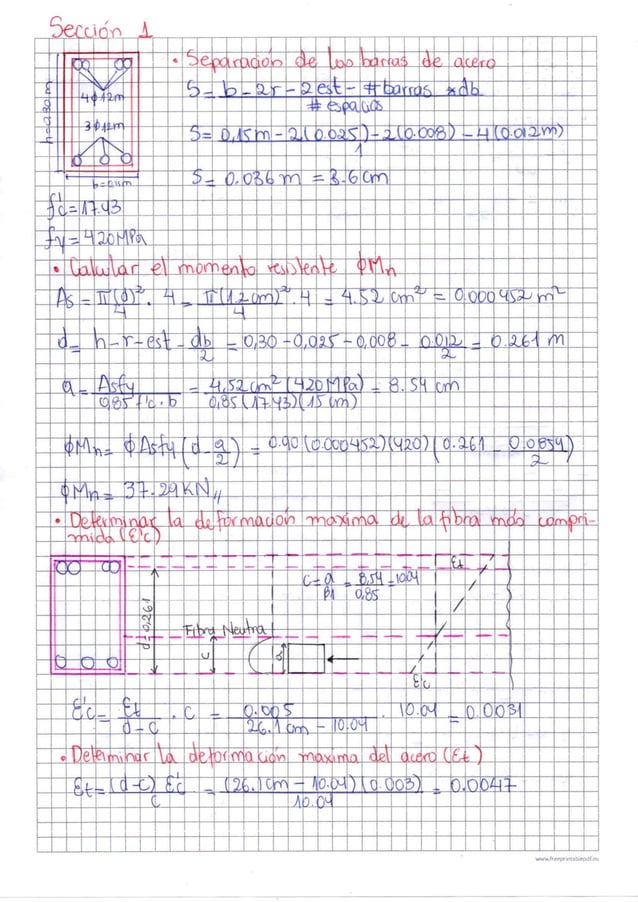 Sección 1
h=0.30 m
4φ12m
3φ12m
b=0.15m
• Separación de las barras de acero
S = b - 2r - 2est - #barras * db / # espacios
S = 0,15m - 2(0.025) - 2(0.008) - 4(0.012m) / 1
S = 0.036 m = 3.6 cm
f'c = 17.43
fy = 420 MPa
• Calcular el momento resistente φMn
As = π(d)²/4 · 4 = π(1.2 cm)²/4 · 4 = 4.52 cm² = 0.000452 m²
d = h - r - est - db/2 = 0,30 - 0,025 - 0,008 - 0.012/2 = 0.261 m
a = Asfy / 0,85 f'c · b = 4,52 cm² (420 MPa) / 0,85 (17.43)(15 cm) = 8.54 cm
φMn = φAsfy (d - a/2) = 0.90 (0.000452)(420)(0.261 - 0.0854/2)
φMn = 37.29 KN //
• Determinar la deformación maxima de la fibra más compri-
mida (ε'c)
d=0.261
Fibra Neutra
c
a
C = a/β1 = 8,54/0.85 = 10.04
εt
ε'c
ε'c = εt / d - c · c = 0.005 / 26.1 cm - 10.04 · 10.04 = 0.0031
• Determinar la deformación maxima del acero (εt)
εt = (d-c) ε'c / c = (26.1cm - 10.04)(0.003) / 10.04 = 0.0047
www.freeprintablepdf.eu